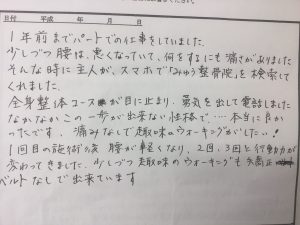 日付 平成 年 月 日
1年前までパートでの仕事をしていました。
少しづつ腰は、悪くなっていて、何をするにも痛さがありました
そんな時に主人が、スマホで「みゅう整骨院」を検索して
くれました。
全身整体コースが目に止まり、勇気を出して電話しました
なかなかこの一歩が出来ない性格で‥‥本当に良か
ったです。痛みなしで趣味のウォーキングがしたい!
1回目の施術の後 腰が軽くなり、2回、3回と行動力が
変わってきました。少しづつ趣味のウォーキングも矯正
ベルトなしで出来ています